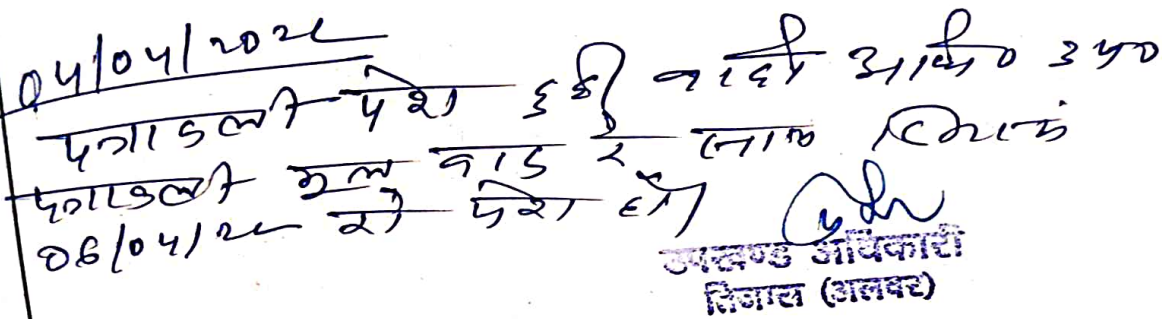 04/04/2022
पत्रावली पेश हुई वादी अभि० उप०
पत्रावली मूल वाद के साथ दिनांक
06/04/22 को पेश हो।
उपखण्ड अधिकारी
तिजारा (अलवर)